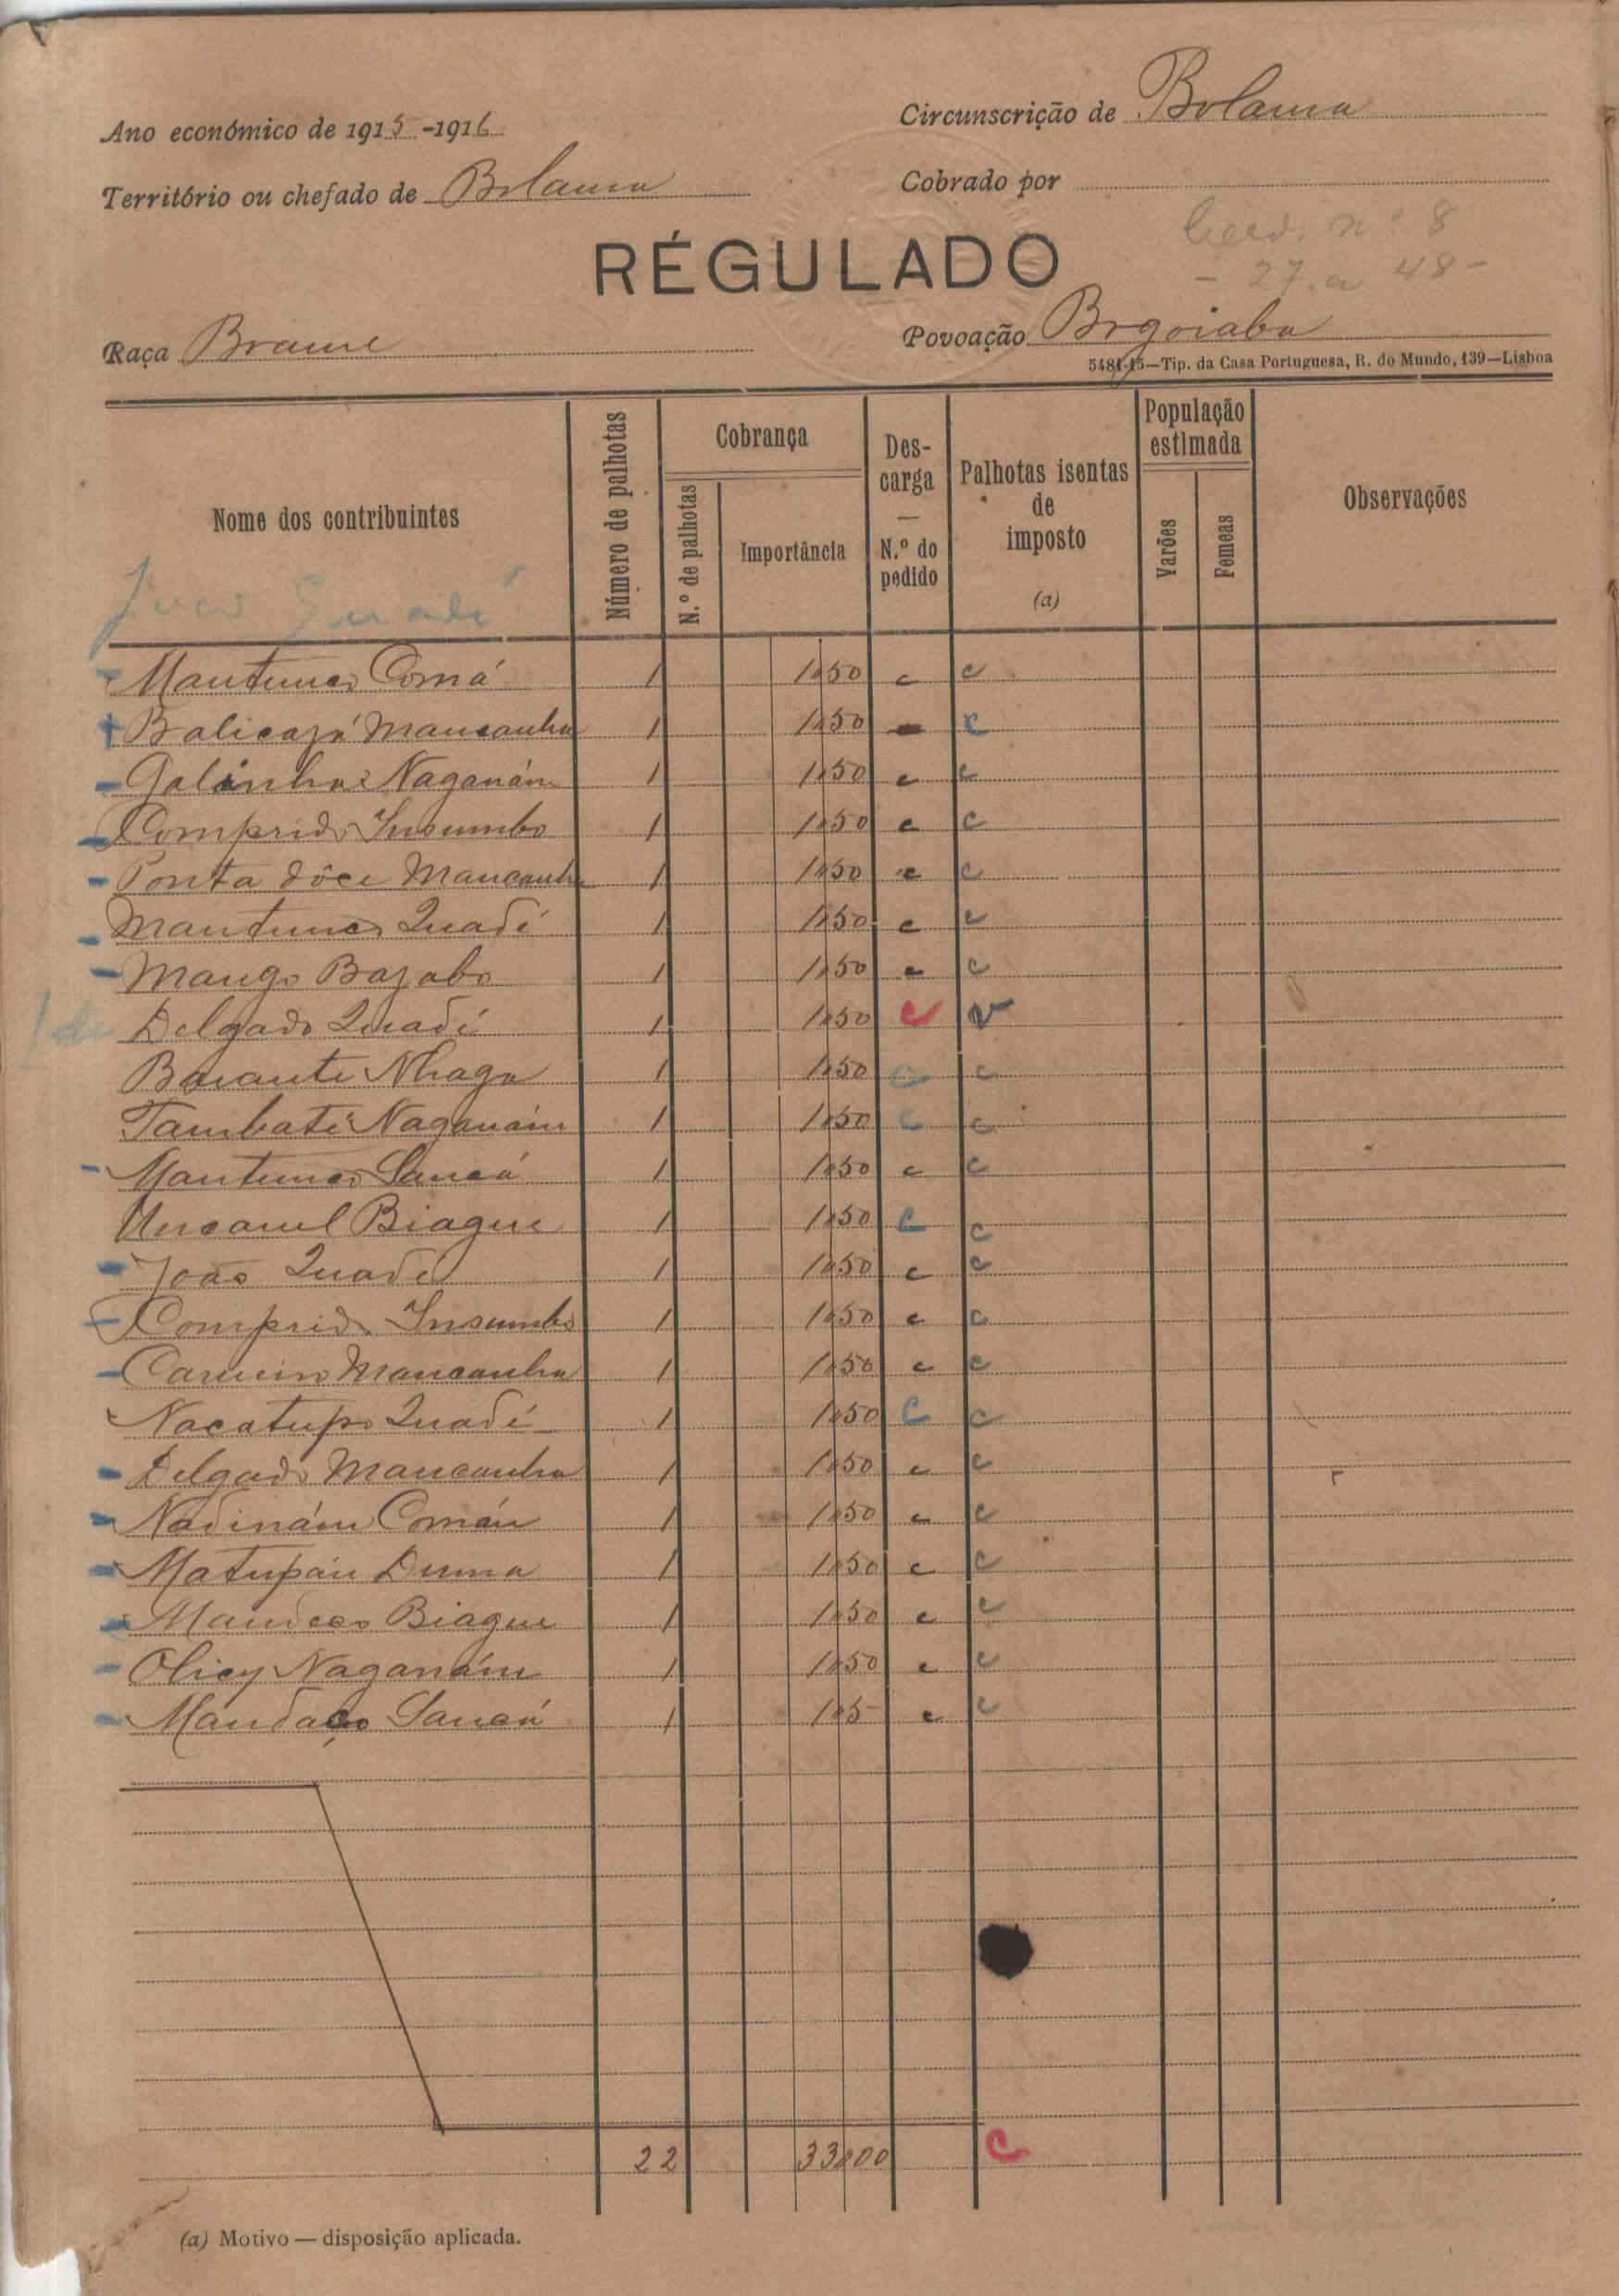 Ano económico de 1915-1916
Circunscrição de Bolama
Território ou chefado de Bolama
Cobrado por
nº 8
- 27 a 48 -
RÉGULADO
Raça Brame
Povoação Bogoiaba
5481-15—Tip. da Casa Portuguesa, R. do Mundo, 139—Lisboa
Nome dos contribuintes
Número de palhotas
Cobrança
N.º de palhotas
Importância
Des-carga — N.º do pedido
Palhotas isentas de imposto (a)
População estimada
Varões
Femeas
Observações
Mantunes Comá 1 1$50 c c
Balicazá Mancanha 1 1$50 c
Galinha Naganám 1 1$50 c c
Comprido Insumbo 1 1$50 c c
Ponta dôce Mancanha 1 1$50 c c
Mantunes Quadé 1 1$50 c c
Mango Bajabo 1 1$50 c c
Delgado Quadé 1 1$50 c v
Nhaga 1 1$50 c c
Tambate Naganám 1 1$50 c c
Mantunes Sancá 1 1$50 c c
Biague 1 1$50 c c
João Quadé 1 1$50 c c
Comprido Insumbo 1 1$50 c c
Carneiro Mancanha 1 1$50 c c
Nacatupo Quadé 1 1$50 c c
Delgado Mancanha 1 1$50 c c
Nadinám Comán 1 1$50 c c
Matupán Duma 1 1$50 c c
Biague 1 1$50 c c
Naganám 1 1$50 c c
Mandaço Sancá 1 1$5 c c
22 33$00 c
(a) Motivo — disposição aplicada.